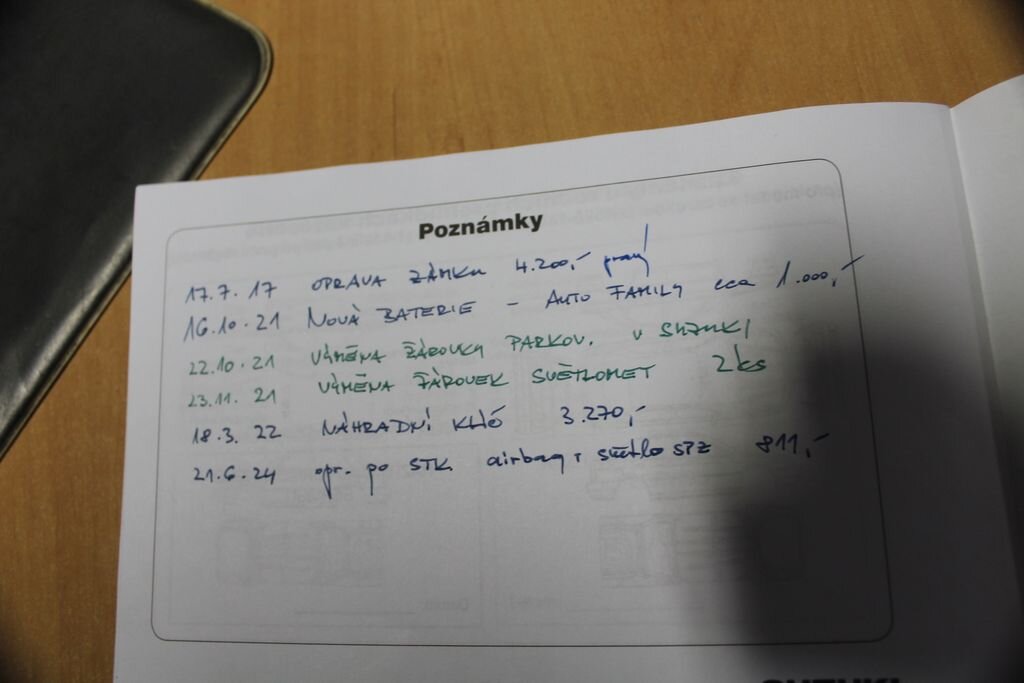 Poznámky
17.7.17 OPRAVA ZÁMKU 4.200,- pravý
16.10.21 NOVÁ BATERIE - AUTO FAMILY cca 1.000,-
22.10.21 VÝMĚNA ŽÁROVKY PARKOV. V SUZUKI
23.11.21 VÝMĚNA ŽÁROVEK SVĚTLOMET 2ks
18.3.22 NÁHRADNÍ KLÍČ 3.270,-
21.6.24 opr. po STK airbag + světlo SPZ 811,-